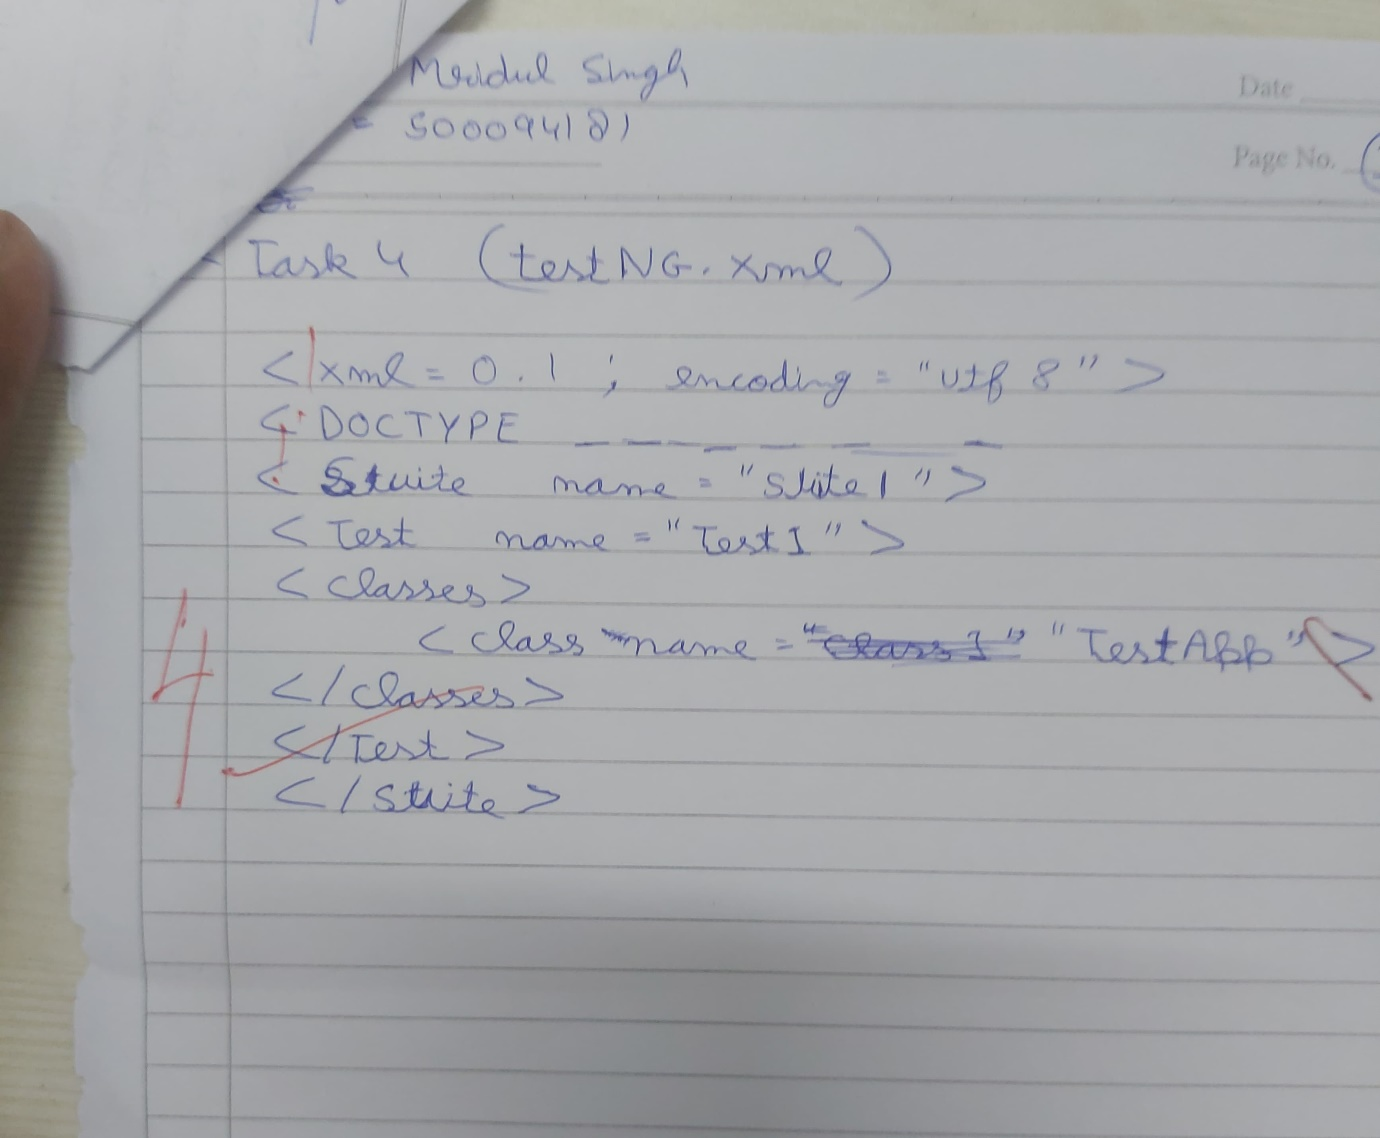 Mridul Singh
500094181
Date
Page No.
Task 4 (testNG.xml)
< xml = 0.1 ; encoding = "utf 8" >
< DOCTYPE _ _ _ _ _ _
< Suite name = "Suite 1" >
< Test name = "Test 1" >
< classes >
< class name = "Class 1" "TestApp" / >
4
</ classes >
</ Test >
</ Suite >